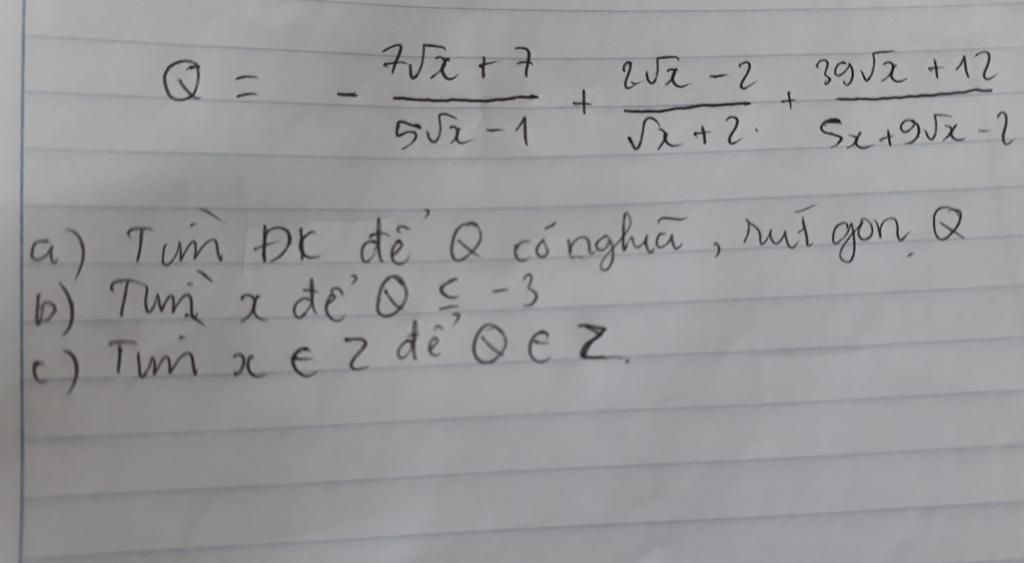 Q = - \frac{7\sqrt{x} + 7}{5\sqrt{x} - 1} + \frac{2\sqrt{x} - 2}{\sqrt{x} + 2} + \frac{39\sqrt{x} + 12}{5x + 9\sqrt{x} - 2}
a) Tìm ĐK để Q có nghĩa, rút gọn Q
b) Tìm x để Q ≤ -3
c) Tìm x ∈ Z để Q ∈ Z.